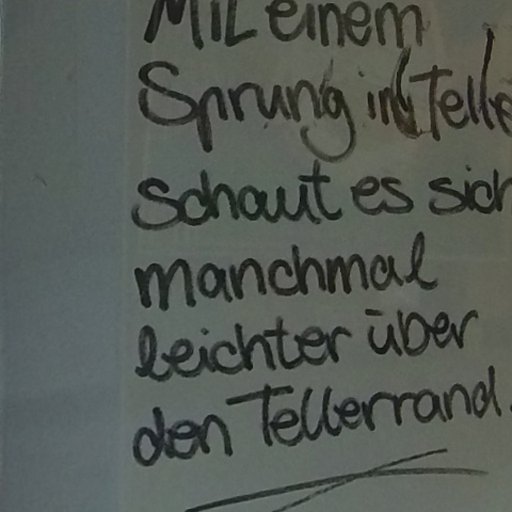 Mit einem
Sprung in Telle
schaut es sich
manchmal
leichter über
den Tellerrand.